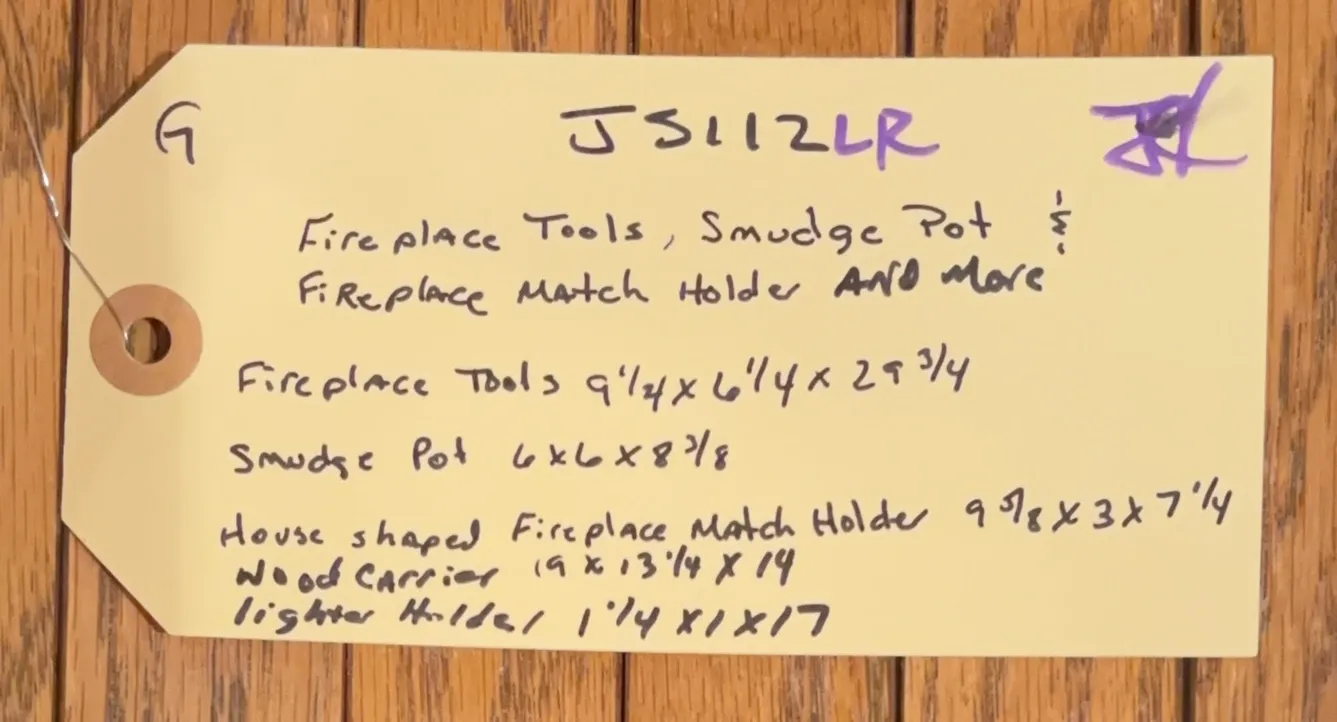 G JS112LR
Fireplace Tools, Smudge Pot &
Fireplace Match Holder AND More
Fireplace Tools 9 1/4 x 6 1/4 x 29 3/4
Smudge Pot 6 x 6 x 8 3/8
House shaped Fireplace Match Holder 9 5/8 x 3 x 7 1/4
Wood Carrier 19 x 13 1/4 x 14
lighter Holder 1 1/4 x 1 x 17